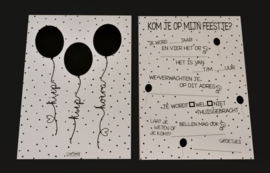 hiep
hiep
hoera
KOM JE OP MIJN FEESTJE?
'K WORD JAAR
EN VIER HET OP
HET IS VAN
T/M UUR
WE VERWACHTEN JE
OP DIT ADRES
JE WORDT WEL NIET
THUISGEBRACHT
LAAT JE
WETEN OF
JE KOMT?
BELLEN MAG OOK
GROETJES